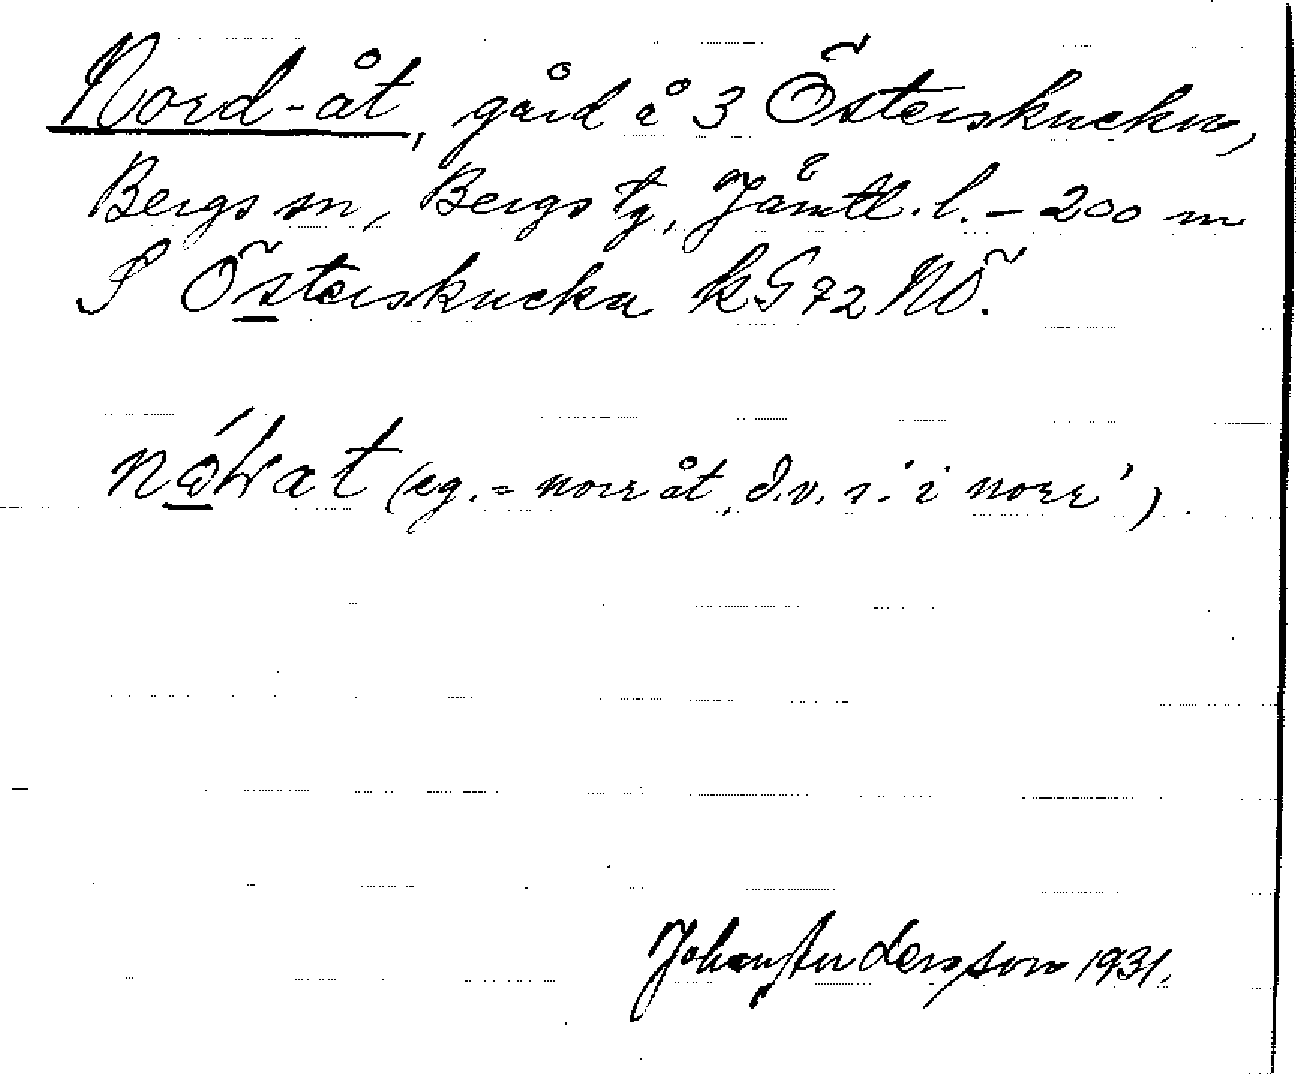 Nord-åt, gård å 3 Österskucku,
Bergs sn, Bergs tg, Jämtl. l. - 200 m
S Österskucku kG72NÖ.
(eg. = norr åt, d.v.s. 'i norr').
Johan Andersson 1931.